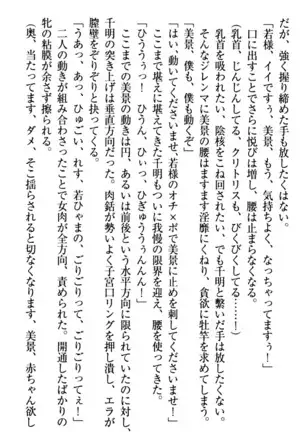 だが、強く握り締めた手も放したくはない。
「若様、イイですぅ、美景、もう、気持ちよく、なっちゃってますぅ！」
口に出すことでさらに悦びは増し、腰は止まらなくなる。
(乳首、じんじんしてる、クリトリスも、びくびくしてる……！)
乳首を吸われたい、陰核をこね回されたい、でも千明と繋いだ手は放したくない。
そんなジレンマに美景の腰はますます淫靡にくねり、貪欲に牡竿を求めてしまう。
「美景、僕も、僕も動くぞ」
「はい、動いてくださいませ、若様のオチ×ポで美景に止めを刺してくださいませ！」
ここまで堪えに堪えてきた千明もついに我慢の限界を迎え、腰を使ってきた。
「ひううぅっ！　ひうん、ひぃっ、ひぎゅうぅぅんんん！」
ここまでの美景の動きは円、あるいは前後という水平方向に限られていたのに対し、
千明の突き上げは垂直方向だった。肉銛が勢いよく子宮口リングを押し潰し、エラが
膣壁をぞりぞりと抉ってくる。
「うあっ、あっ、ひゅごい、れす、若ひゃまの、ごりごりって、ごりごりってぇ！」
二人の動きが組み合わさったことで女肉が全方向、責められた。開通したばかりの
牝の粘膜が余さず擦られる。
(奥、当たってます、ダメ、そこ揺らされると切なくなります、美景、赤ちゃん欲し